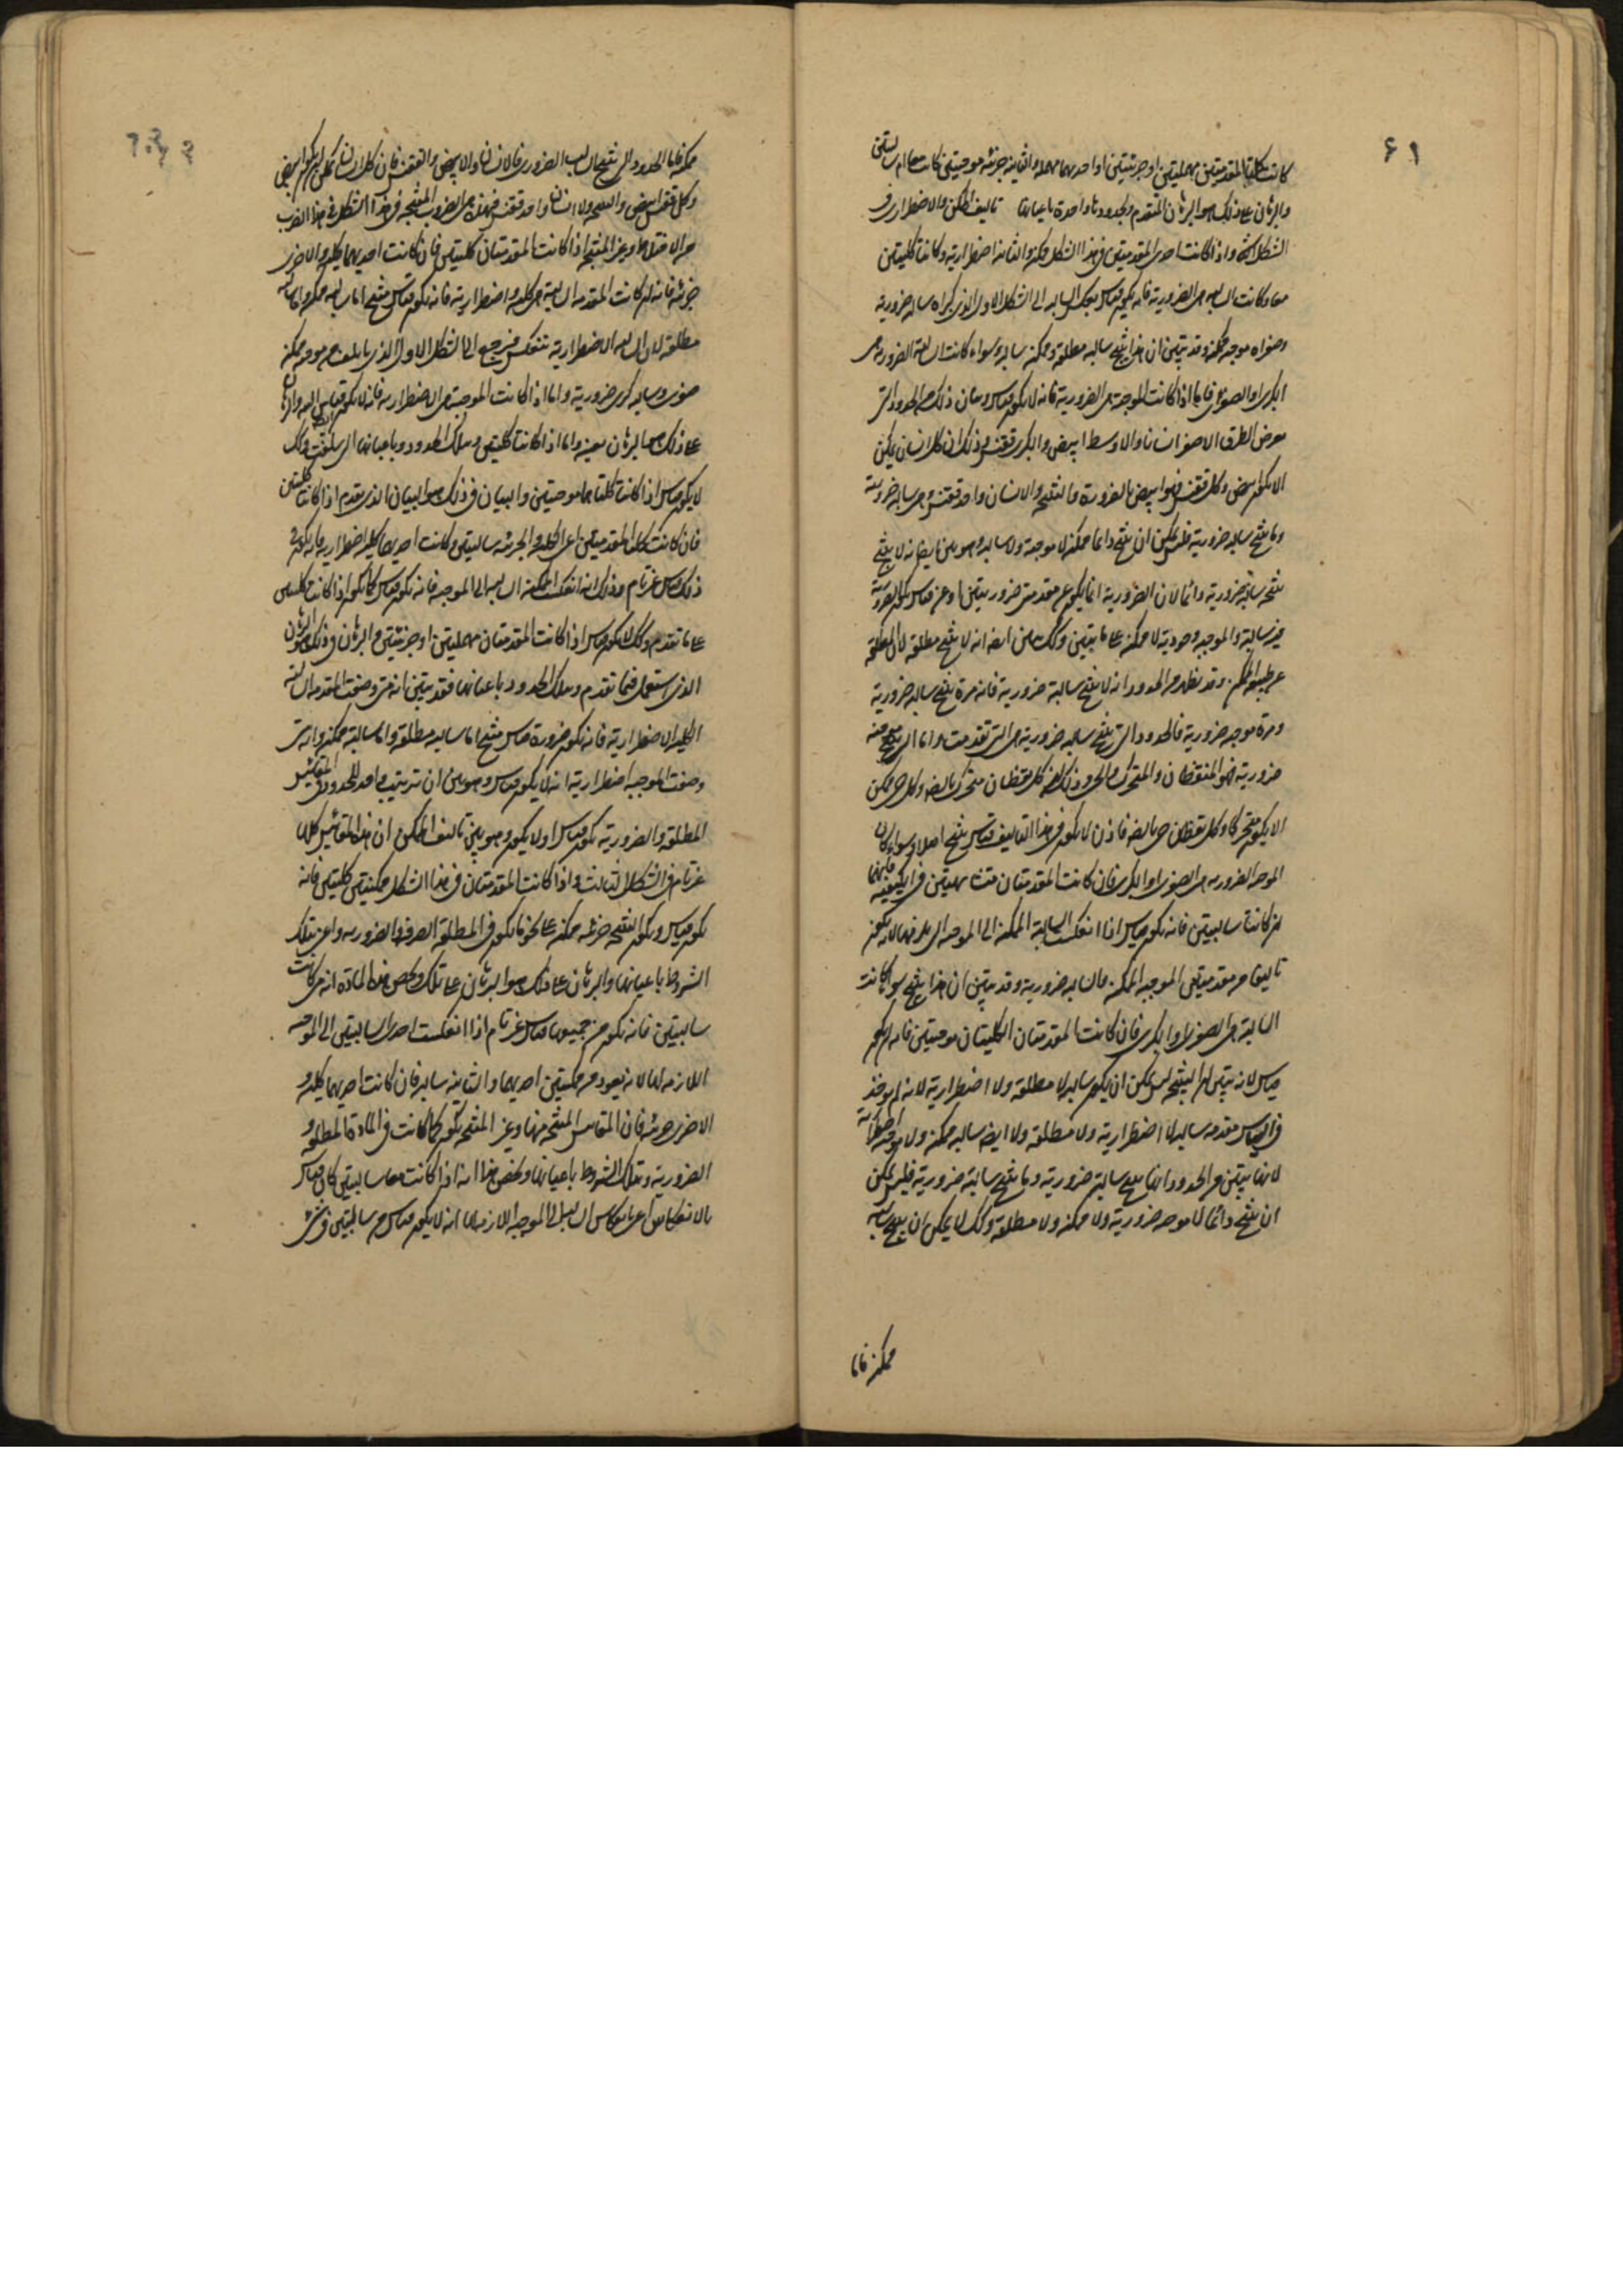 ٤١
كانت كلتا المقدمتين مهملتين او جزئيتين او احديهما مهملة والثانية جزئية موجبتين كانت معا ام سالبتين
والبرهان على ذلك هو البرهان المتقدم وبحدود ما واحدة باعيانها تاليف الممكن والاضطراري في
الشكل واذا كانت احدى المقدمتين في هذا الشكل ممكنة والثانية اضطرارية وكانتا كليتين
معا وكانت السالبة هي الضرورية فانه يكون قياس بعكس السالبة الى الشكل الاول الذي كبراه سالبة ضرورية
وصغراه موجبة ممكنة وقد تبين ان هذا ينتج سالبة مطلقة وممكنة سالبة وسواء كانت السالبة الضرورية هي
الكبرى او الصغرى فاما اذا كانت الموجبة هي الضرورية فانه لا يكون قياس وبيان ذلك من الحدود التي
الطرف الاصغر انسانا والاوسط ابيض والاكبر ققنس وذلك ان كل انسان يمكن
الا يكون ابيض وكل ققنس فهو ابيض بالضرورة والنتيجة ولا انسان واحد ققنس وهي سالبة ضرورية
وما ينتج سالبة ضرورية فليس يمكن ان ينتج دائما ممكنة لا موجبة ولا سالبة وهو بين ايضا انه لا ينتج
نتيجة سالبة ضرورية دائما لان الضرورية انما تكون عن مقدمتين ضروريتين او عن قياس تكون الضرورية
فيه سالبة والموجبة وجودية لا ممكنة على ما تبين وكذلك يبين ايضا انه لا ينتج مطلقة لان المطلقة
عن طبيعة الممكن وقد يظهر من الحدود انه لا ينتج سالبة ضرورية فانه مرة ينتج سالبة ضرورية
ومرة موجبة ضرورية فالحدود التي تنتج سالبة ضرورية هي التي تقدمت واما التي تنتج موجبة
ضرورية فهو اليقظان والمتحرك والحي وذلك ان كل يقظان متحرك بالضرورة وكل حي ممكن
الا يكون متحركا وكل يقظان حي بالضرورة فاذن لا يكون في هذا التاليف قياس ينتج اصلا وسواء كان
الموجبة الضرورية هي الصغرى او الكبرى فان كانت المقدمتان متشابهتين في الكيفية فانهما
ان كانتا سالبتين فانه يكون قياس اذا انعكست السالبة الممكنة الى الموجبة التي تلزمها لانه يكون
تاليفا من مقدمتين الموجبة الممكنة والسالبة ضرورية وقد تبين ان هذا ينتج سواء كانت
السالبة هي الصغرى او الكبرى فان كانت المقدمتان الكليتان موجبتين فانه لا يكون
قياس لانه تبين ان النتيجة ليس يمكن ان يكون سالبة لا مطلقة ولا اضطرارية لانه لم يوخذ
في القياس مقدمة سالبة لا اضطرارية ولا مطلقة ولا ايضا سالبة ممكنة ولا موجبة اضطرارية
لانها تبين من الحدود انها تنتج سالبة ضرورية وما ينتج سالبة ضرورية فليس يمكن
ان ينتج دائما لا موجبة ضرورية ولا ممكنة ولا مطلقة وكذلك لا يمكن ان ينتج سالبة
ممكنة فاما
ممكنة فاما الحدود التي تنتج السالب الضروري فالانسان والابيض والققنس فان كل انسان يمكن ان يكون ابيض
وكل ققنس ابيض والنتيجة ولا انسان واحد ققنس فهذه هي الضروب المنتجة في هذا الشكل في هذا الضرب
من الاختلاط وغير المنتجة اذا كانت المقدمتان كليتين فان كانت احديهما كلية والاخرى
جزئية فانه ان كانت المقدمة السالبة هي كلية واضطرارية فانه يكون قياس منتج اما سالبة ممكنة واما سالبة
مطلقة لان السالبة الاضطرارية تنعكس فيرجع الى الشكل الاول الذي ياتلف من موجبة ممكنة
صغرى وسالبة كبرى ضرورية واما اذا كانت الموجبة هي الاضطرارية فانه لا يكون قياس والبرهان
على ذلك هو البرهان بعينه واما اذا كانتا كليتين وتلك الحدود وباعيانها التي سلفت وكذلك
لا يكون قياس اذا كانت كلتاهما موجبتين والبيان في ذلك هو البيان الذي تقدم اذا كانتا كليتين
فان كانت كلتا المقدمتين اعني الكلية والجزئية سالبتين وكانت احديهما كلية اضطرارية فانه يكون في
ذلك قياس غير تام وذلك انه اذا انعكست الممكنة السالبة الى الموجبة فانه يكون قياس كما يكون اذا كانتا كليتين
على ما تقدم وكذلك لا يكون قياس اذا كانت المقدمتان مهملتين او جزئيتين والبرهان في ذلك هو البرهان
الذي استعمل فيما تقدم وتلك الحدود باعيانها فقد تبين انه متى وضعت المقدمة السالبة
الكلية الاضطرارية فانه يكون ضرورة قياس منتج اما سالبة مطلقة واما سالبة ممكنة وانه متى
وضعت الموجبة اضطرارية انه لا يكون قياس وهو بين ان ترتيب واحد للحدود في المقاييس
المطلقة والضرورية يكون قياس او لا يكون وهو بين تاليف الممكن ان هذه المقاييس كلها
غير تامة في الشكل الثالث واذا كانت المقدمتان في هذا الشكل ممكنتين كليتين فانه
يكون قياس وتكون النتيجة جزئية ممكنة على نحو ما يكون في المطلقة الصرفة والضرورية واعني بتلك
الشروط باعيانها والبرهان على ذلك هو البرهان على تلك ويخص هذه المادة انه متى كانت
سالبتين فانه يكون من جميعها قياس غير تام اذا انعكست احدى السالبتين الى الموجبة
اللازمة لها لانه يعود من ممكنتين احديهما والثانية سالبة فان كانت احديهما كلية و
الاخرى جزئية فان المقاييس المنتجة منها وغير المنتجة يكون كما كانت في المادة المطلقة و
الضرورية وبتلك الشروط باعيانها ويخص هذا انه اذا كانت معا سالبتين كان قياس
بالانعكاس اعني بانعكاس السالبة الى الموجبة اللازمة لها انه لا يكون قياس من سالبتين في شيء